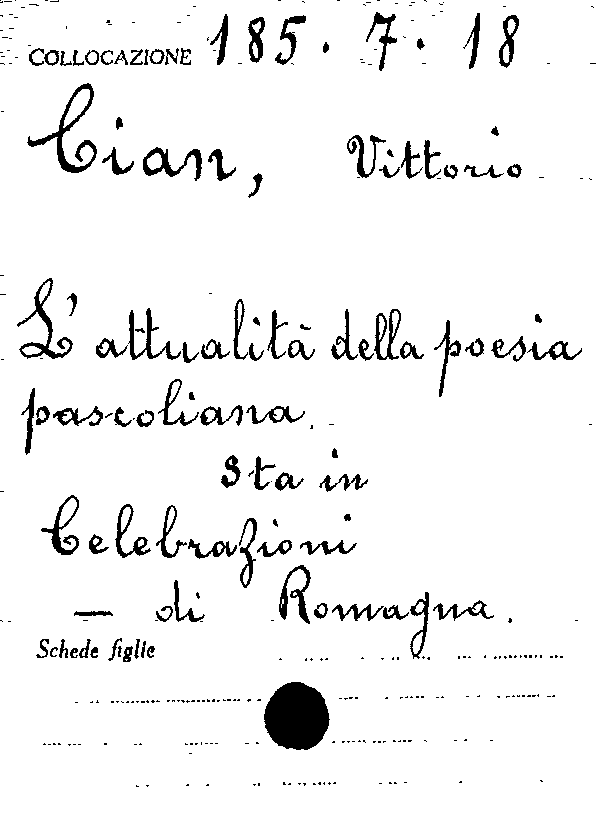 COLLOCAZIONE 185. 7. 18
Cian, Vittorio
L'attualità della poesia
pascoliana.
Sta in
Celebrazioni
— di Romagna.
Schede figlie